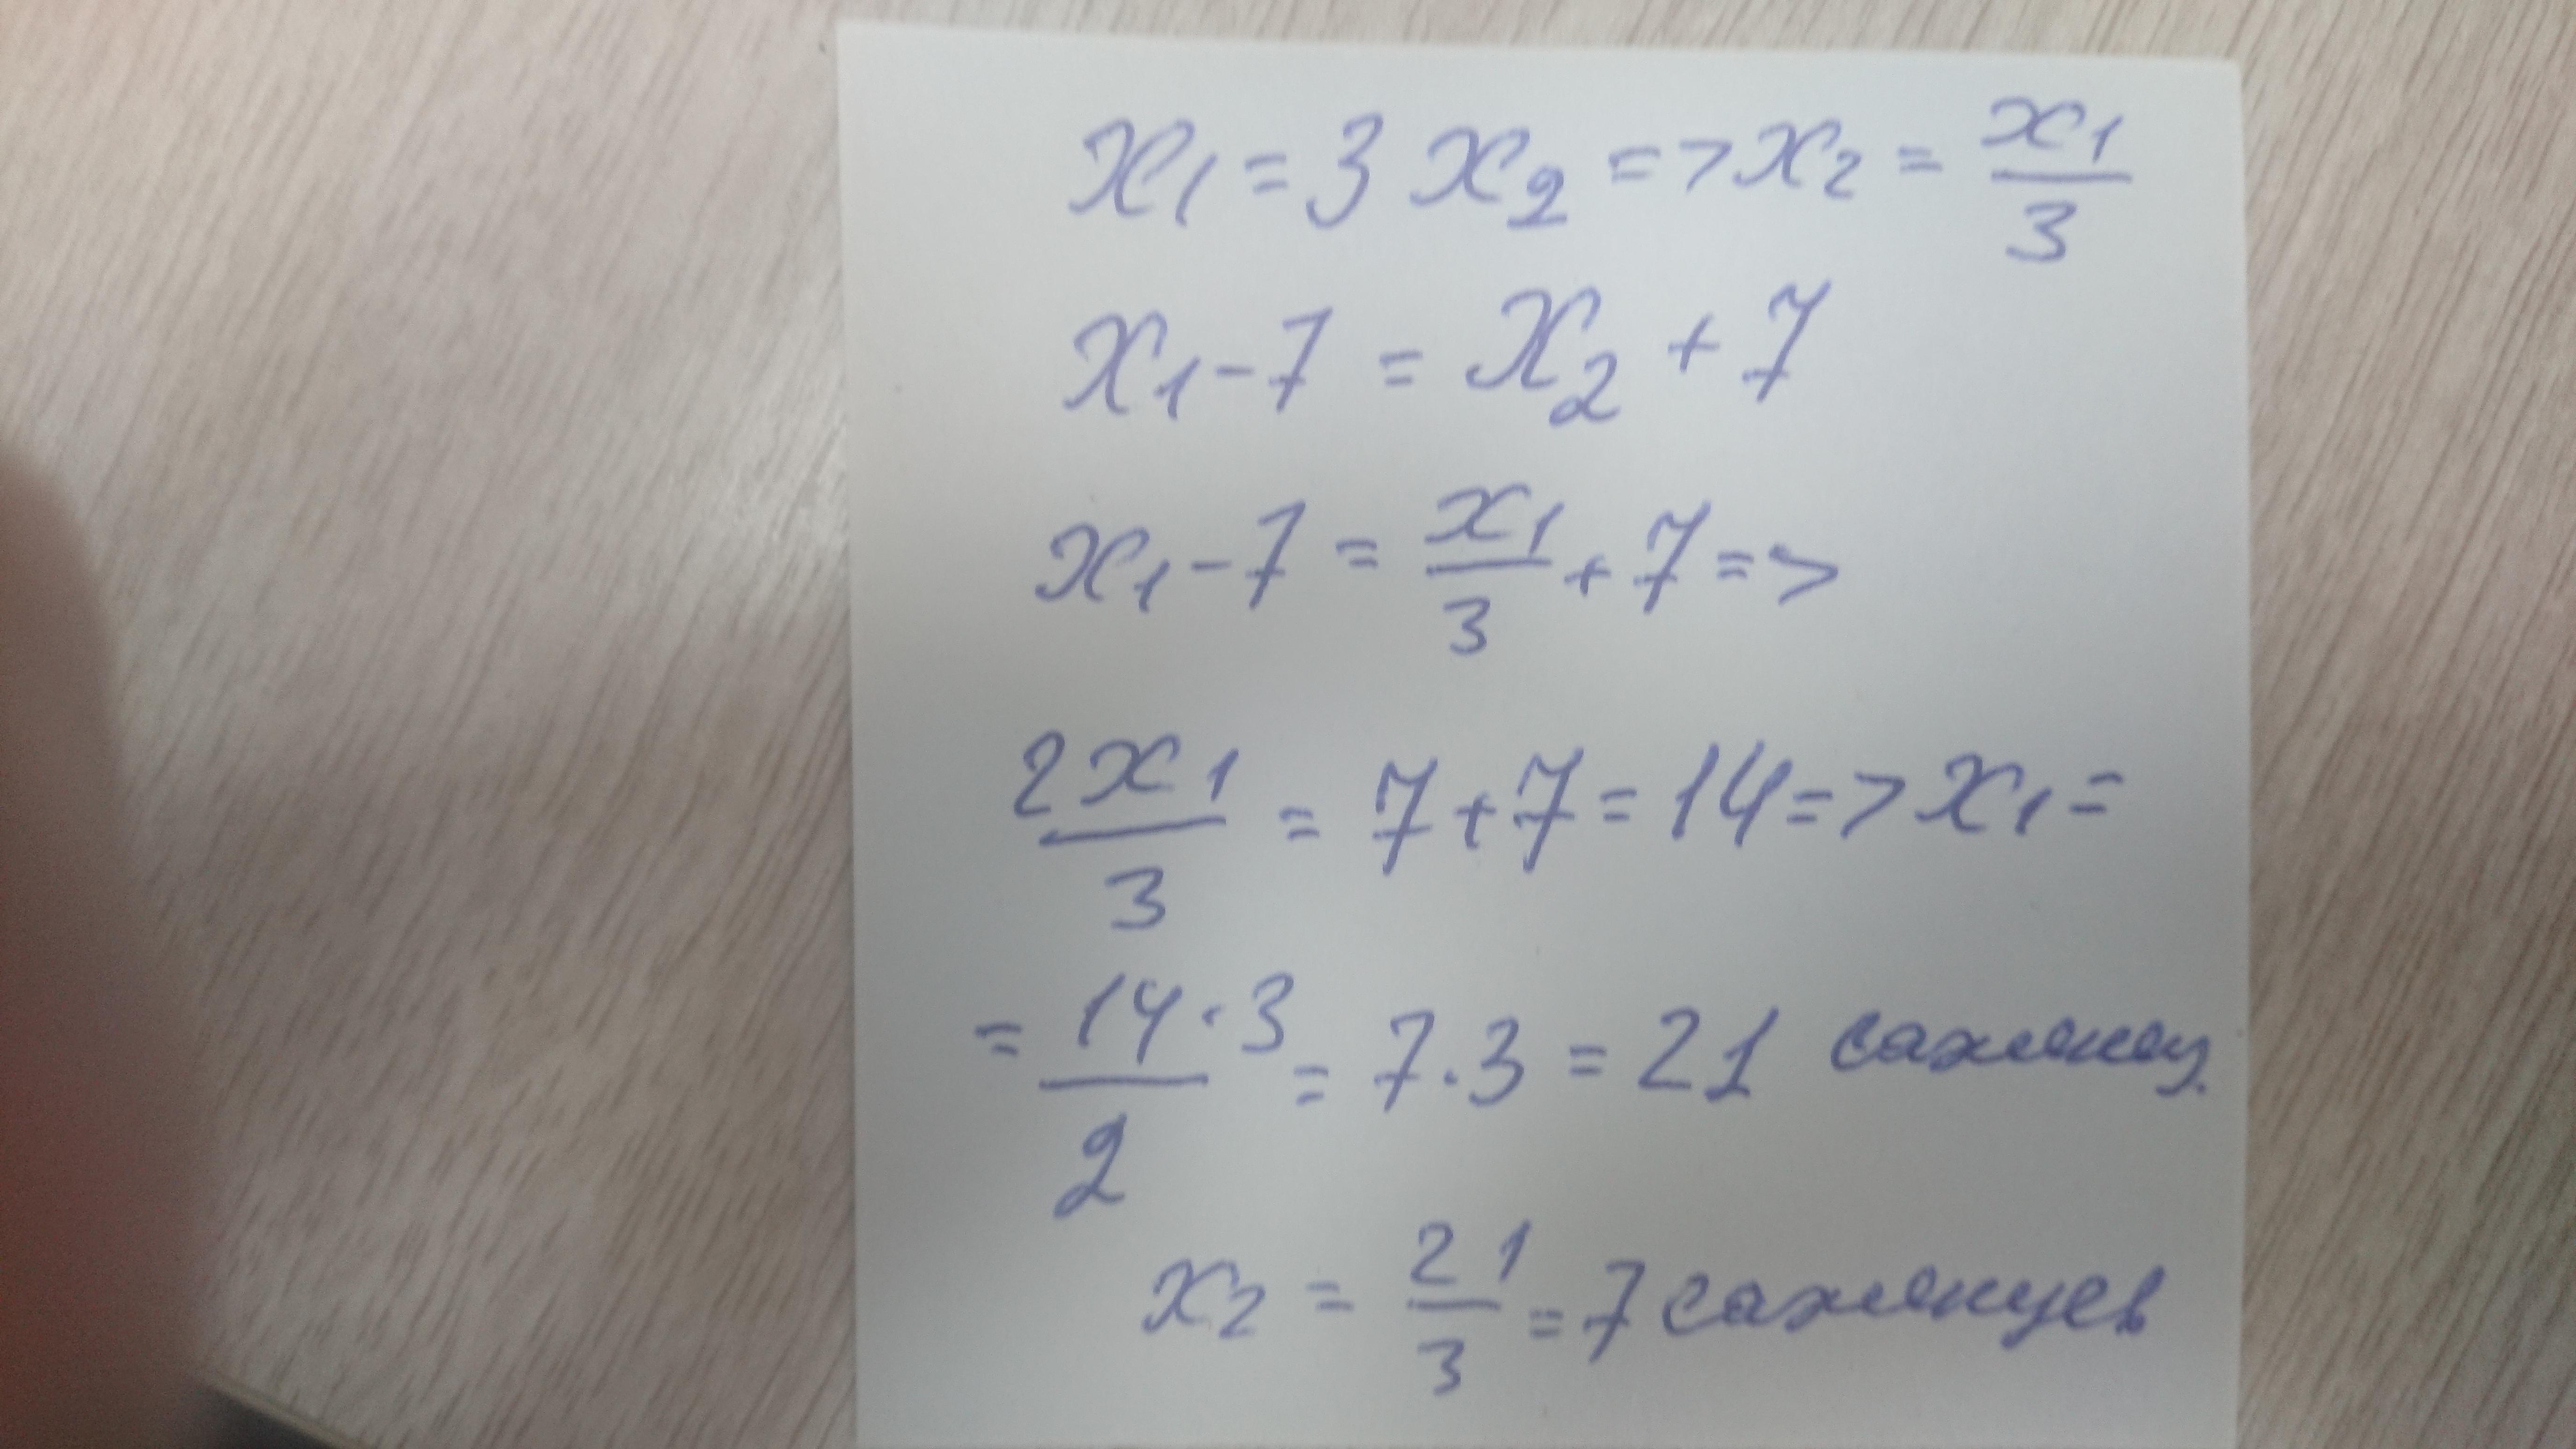 x₁ = 3 x₂ => x₂ = x₁/3
x₁ - 7 = x₂ + 7
x₁ - 7 = x₁/3 + 7 =>
2x₁/3 = 7 + 7 = 14 => x₁ =
= 14 · 3/2 = 7 · 3 = 21 саженец
x₂ = 21/3 = 7 саженцев